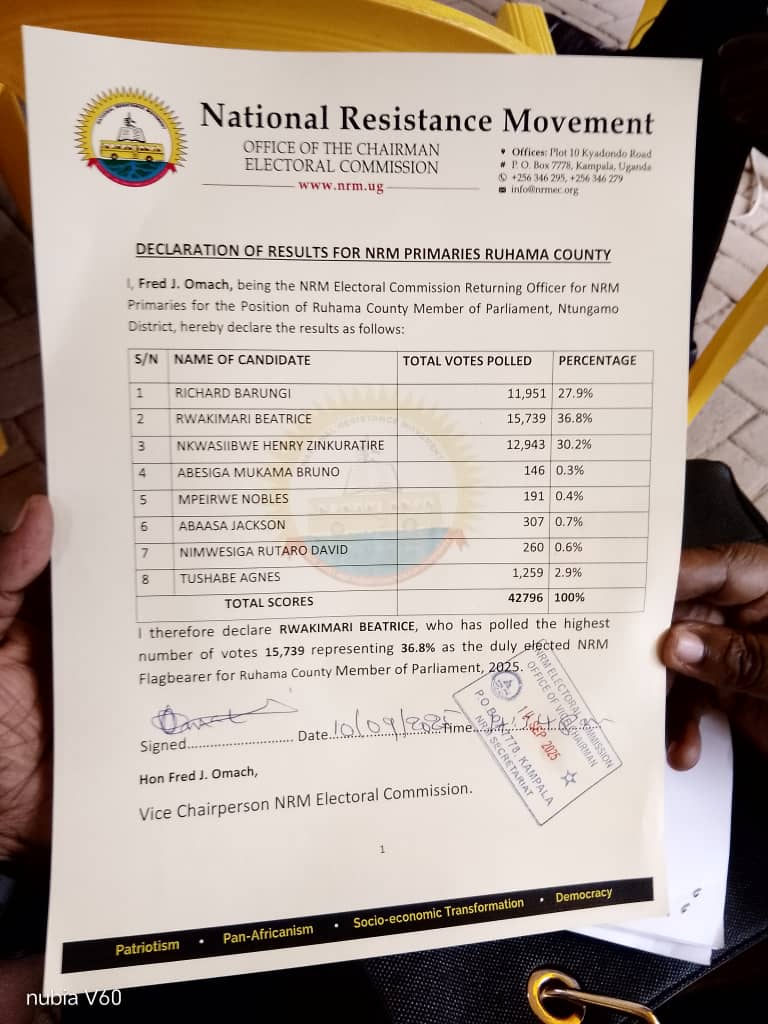 National Resistance Movement
OFFICE OF THE CHAIRMAN
ELECTORAL COMMISSION
www.nrm.ug
Offices: Plot 10 Kyadondo Road
# P. O. Box 7778, Kampala, Uganda
+256 346 295, +256 346 279
info@nrmec.org
DECLARATION OF RESULTS FOR NRM PRIMARIES RUHAMA COUNTY
I, Fred J. Omach, being the NRM Electoral Commission Returning Officer for NRM
Primaries for the Position of Ruhama County Member of Parliament, Ntungamo
District, hereby declare the results as follows:
S/N NAME OF CANDIDATE TOTAL VOTES POLLED PERCENTAGE
1 RICHARD BARUNGI 11,951 27.9%
2 RWAKIMARI BEATRICE 15,739 36.8%
3 NKWASIIBWE HENRY ZINKURATIRE 12,943 30.2%
4 ABESIGA MUKAMA BRUNO 146 0.3%
5 MPEIRWE NOBLES 191 0.4%
6 ABAASA JACKSON 307 0.7%
7 NIMWESIGA RUTARO DAVID 260 0.6%
8 TUSHABE AGNES 1,259 2.9%
TOTAL SCORES 42796 100%
I therefore declare RWAKIMARI BEATRICE, who has polled the highest
number of votes 15,739 representing 36.8% as the duly elected NRM
Flagbearer for Ruhama County Member of Parliament, 2025.
Signed........................... Date 10/09/2025 Time
NRM ELECTORAL COMMISSION
OFFICE OF VICE CHAIRMAN
SEP 2025
P.O BOX 7778, KAMPALA
NRM SECRETARIAT
Hon Fred J. Omach,
Vice Chairperson NRM Electoral Commission.
1
Patriotism • Pan-Africanism • Socio-economic Transformation • Democracy
nubia V60